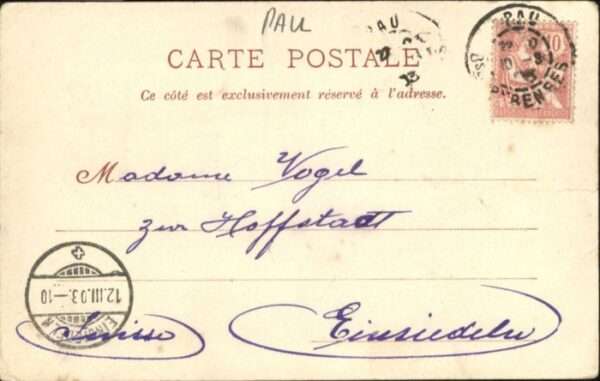 PAU
PAU
PAU
PYRENEES
10
CARTE POSTALE
Ce côté est exclusivement réservé à l'adresse.
Madame Vogel
zur Hoffstadt
12.III.03.-10
Suisse Einsiedeln